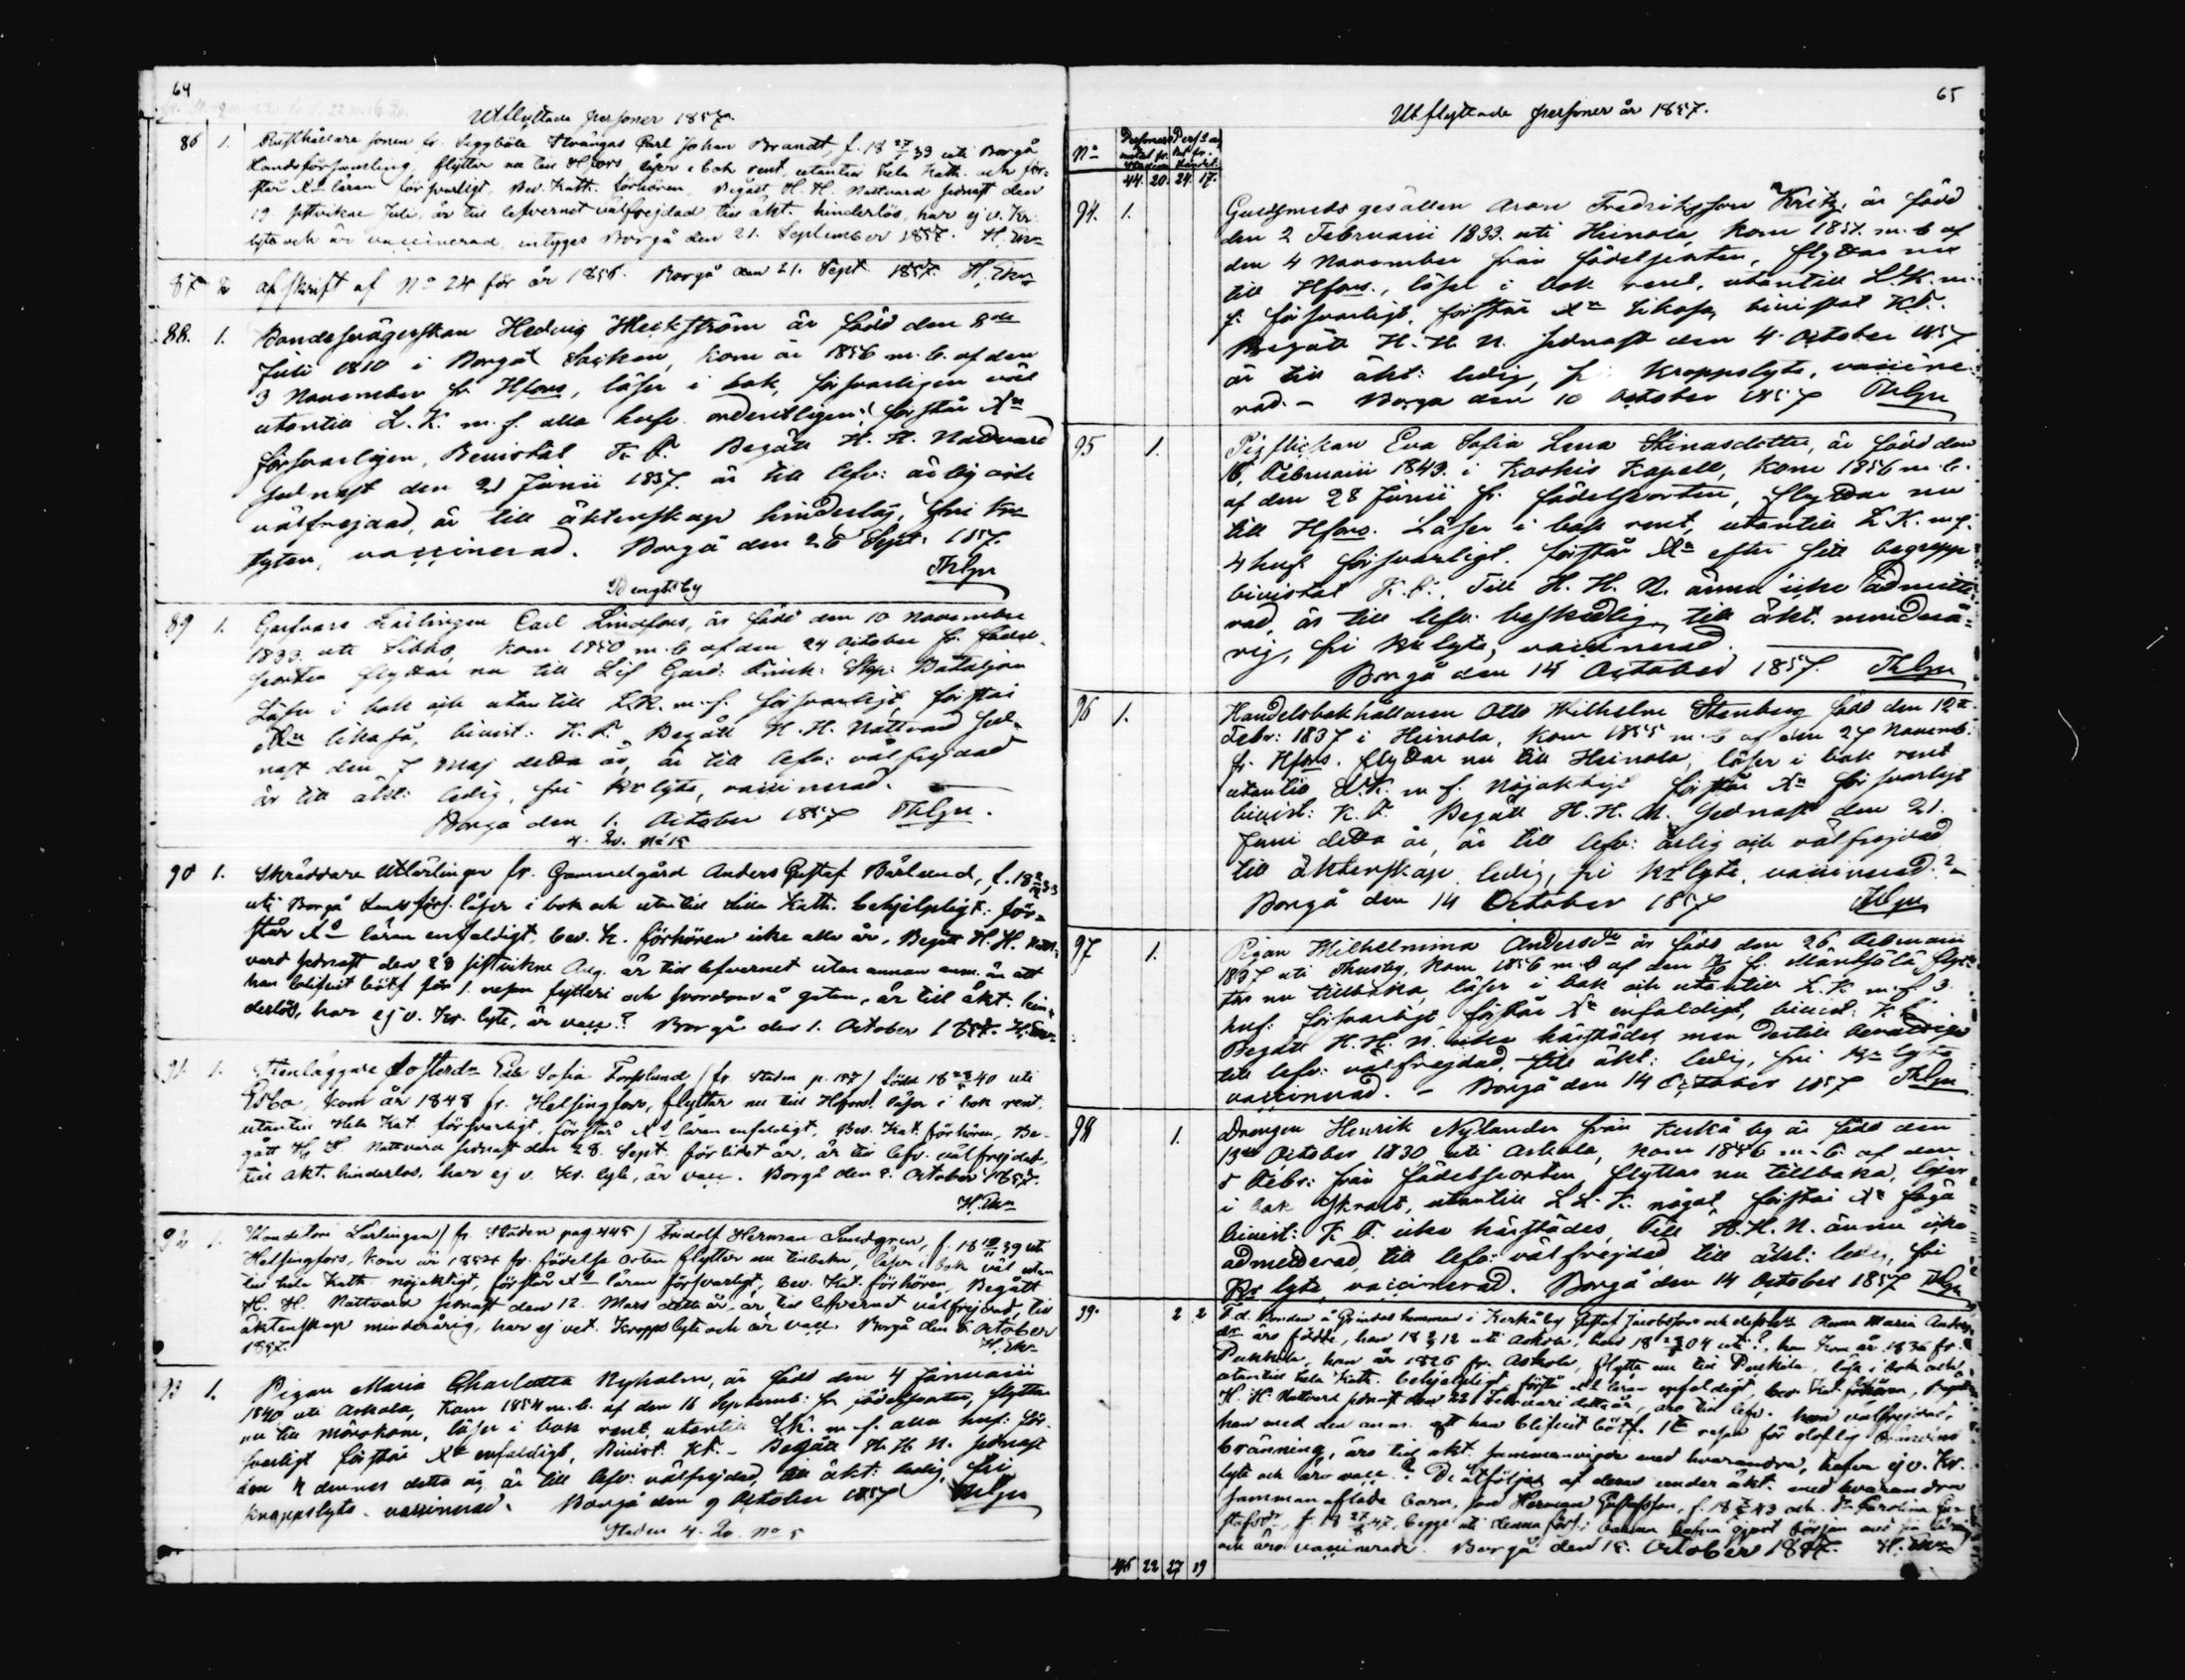 64
Utflyttade personer 1857.
86 1. Rusthållare sonen fr. Seggböle Strängas Carl Johan Brandt, f. 18 27/1 39 uti Borgå
Landsförsamling, flyttar nu till H:fors läser i bok rent, utantill hela Kath. och för-
står Xn läran försvarligt. Bev. Kath. förhören, Begått H. H. Nattvard sednast den
19. sistvikne Juli, är till lefvernet välfrejdad till äkt. hinderlös, har ej v. Kr.
lyte och är vaccinerad, intygas Borgå den 21. September 1857. H. Ekn
87 2 afskrift af No 24 för år 1856. Borgå den 21. Sept. 1857. H. Ekn
88. 1. Bondesvägerskan Hedvig Heikström är född den 8de
Juli 1810 i Borgå Socken, kom år 1856 m. b. af den
3 November fr. Hfors, läser i bok försvarligen väl
utantill L. K. m. f. alla husf. ordentligen, förstår Xn
försvarligen, Bevistat K. F. Begått H. H. Nattvard
sednast den 21 Junii 1857. är till lefv: ärlig och
välfrejdad, är till äktenskap hinderlös, fri Kr
lyten, vaccinerad. Borgå den 26 Sept: 1857.
Thlgn
Bengtsby
89 1. Garfvare Lärlingen Carl Lindfors, är född den 10 November
1833 uti Sibbo, kom 1850 m. b. af den 24 October fr. födel-
seorten flyttar nu till Lif Gard: Finsk: Skp: Bataljon
Läser i bok och utantill L.K. m. f. försvarligt, förstår
Xn likaså, bivist: K. F. Begått H. H. Nattvard sed-
nast den 7 Maj detta år, är till lefv: välfrejdad
är till äkt: ledig, fri Kr lyte, vaccinerad.
Borgå den 1. October 1857 Thlgn.
4. Qv. No 15
90 1. Skräddare Utlärlingen fr. Gammelgård Anders Gustaf Bärlund, f. 18 33
uti Borgå Landsförs. läser i bok och utantill Lilla Kath. behjelpligt: för-
står Xs läran enfaldigt, bev. K. förhören icke alla år, Begått H. H. Natt-
vard sednast den 23 sistvikne Aug. är till lefvernet utan annan anm. än att
han blifvit bötf. för 1. resan fylleri och svordom å gatan, är till äkt. hin-
derlös, har ej v. Kr. lyte, är vacc.? Borgå den 1. October 1857. H. Ekn
91. 1. Stenläggare fosterdn Eda Sofia Forsslund (fr. Staden p. 187) född 18 40 uti
Esbo, kom år 1848 fr. Helsingfors, flyttar nu till Hfors, läser i bok rent,
utantill Hela Kat. försvarligt, förstår Xs läran enfaldigt, Bev. Kat. förhören, Be-
gått H. H. Nattvard sednast den 28. Sept. förlidet år, är till lefv. välfrejdad,
till äkt. hinderlös, har ej v. Kr. lyte, är vacc. Borgå den 2. October 1857.
H. Ekn
92 1. Konditori Lärlingen (fr. Staden pag 445) Fridolf Herman Lindgren, f. 18 10/11 39 uti
Helsingfors, kom år 1854 fr. födelse orten flyttar nu tillbaka, läser i bok väl utan
till hela Kath. nöjaktigt, förstår Xs läran försvarligt, bev. Kat. förhören, Begått
H. H. Nattvard sednast den 12. Mars detta år, är till lefvernet välfrejdad, till
äktenskap minderårig, har ej vet. Kropps lyte och är vacc. Borgå den 6 October
1857. H. Ekn
93 1. Pigan Maria Charlotta Nyholm, är född den 4 Januarii
1840 uti Askola, kom 1854 m. b. af den 16 Septemb: fr födelseorten, flyttar
nu till Mörskom, läser i bok rent, utantill L.K. m. f. alla husf: för-
svarligt förstår Xn enfaldigt, Bivist. KF. – Begått H H N. sednast
den 4 dennes detta år, är till lefv: välfrejdad, till äkt: ledig, fri
kroppslyte. vaccinerad. Borgå den 9 October 1857 Thlgn
Staden 4. Qv. No 5
65
Utflyttade personer år 1857.
No Personer
44. 20. 24. 17.
94. 1. Guldsmeds gesällen Aron Fredriksson Kritz, är född
den 2 Februarii 1833. uti Heinola, kom 1857. m. b af
den 4 November från födelseorten, flyttar nu
till Hfors., läser i bok rent, utantill L.K. m.
f. försvarligt, förstår Xn likaså, bivistat KF.
Begått H. H. N. sednast den 4 October 1857
är till äkt: ledig, fri Kroppslyte, vaccine-
rad. – Borgå den 10 October 1857 Thlgn
95 1. Pigflickan Eva Sofia Lena Stinasdotter, är född den
16. Februarii 1843. i Koskis Kapell, kom 1856 m. b.
af den 28 Junii fr. födelseorten, flyttar nu
till Hfors. Läser i bok rent, utantill L.K. m. f.
4 husf försvarligt. förstår Xn efter sitt begrepp
bivistat K. F., Till H. H. N. ännu icke admitte-
rad, är till lefv: beskedlig, till äkt. minderå-
rig, fri Kr lyte, vaccinerad.
Borgå den 14 October 1857. Thlgn
96 1. Handelsbokhållaren Otto Wilhelm Stenberg född den 12te
Febr: 1837 i Heinola, kom 1855 m. b af den 27 Novemb:
fr. Hfors. flyttar nu till Heinola, läser i bok rent
utantill L.K. m f. nöjaktigt förstår Xn försvarligt
bivist: K. F. Begått H. H. N. sednast den 21.
Juni detta år, är till lefv: ärlig och välfrejdad
till äktenskap ledig, fri Kr lyte, vaccinerad.?
Borgå den 14 October 1857 Thlgn
97 1. Pigan Wilhelmina Andersdr är född den 26 Februarii
1837 uti Thusby, kom 1856 m. b af den fr. Mäntsälä flyt-
tar nu tillbaka, läser i bok och utantill L.K. m. f 3
husf: försvarligt förstår Xn enfaldigt, bivist: K. F.
Begått H. H. N. icke härstädes, men dertill berättigad
till lefv: välfrejdad, till äkt: ledig, fri Kr lyte
vaccinerad. – Borgå den 14 October 1857 Thlgn
98 1. Drengen Henrik Nylander från Kerkå by är född den
13de October 1830 uti Askola, kom 1856 m. b. af den
5 Febr: från födelseorten, flyttar nu tillbaka, läser
i bok skralt, utantill L L. K. något, förstår Xn föga
bivist: K. F. icke härstädes, Till H. H. N. ännu icke
admitterad, till lefv: välfrejdad, till äkt: ledig, fri
Kr lyte, vaccinerad. Borgå den 14 October 1857 Thlgn
99. 2 2 F.d. Bonden å Grindas hemman i Kerkå by Gustaf Jacobsson och dess hu Anna Maria Anders
dr äro födde, han 18 12 uti Askola, hon 18 04 uti ?, han kom år 1836 fr.
Pukkila, hon år 1826 fr. Askola, flytta nu till Pukkila, läsa i bok och
utantill hela Kath. behjelpligt, förstå Xs läran enfaldigt, bev. Kat. förhören, Begått
H. H. Nattvard sednast den 22 Februari detta år, äro till lefv. hon välfrejdad,
han med den anm. att han blifvit bötf. 1te resan för oloflig brännvins
bränning, äro till äkt. sammanvigde med hvarandra, hafva ej v. Kr.
lyte och äro vacc.? De åtföljas af deras under äkt. med hvarandra
samman aflade barn, son Herman Gustafsson, f. 18 43 och dr Carolina Gu-
stafsdr, f. 18 27/8 47, begge uti denna förs: barnen hafva gjort början med sin läsning
och äro vaccinerade. Borgå den 15. October 1857. H. Ekn
46 22 27 19